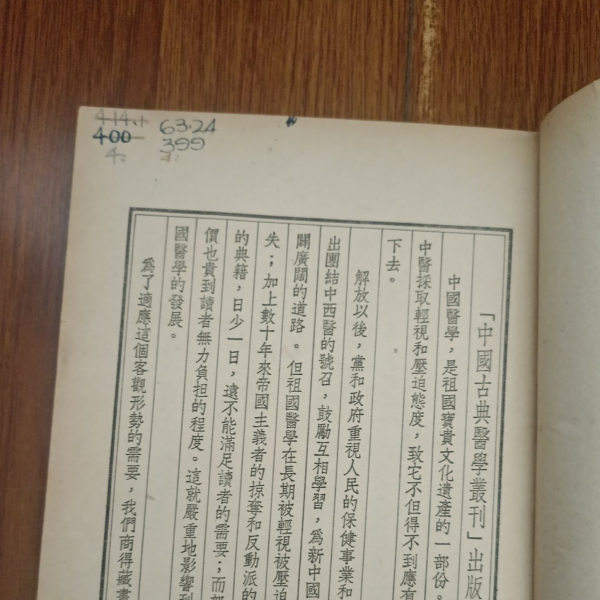 414.1
400
4:
63.24
399
4:
「中國古典醫學叢刊」出版
中國醫學，是祖國寶貴文化遺產的一部份。
中醫採取輕視和壓迫態度，致它不但得不到應有
下去。
解放以後，黨和政府重視人民的保健事業和
出團結中西醫的號召，鼓勵互相學習，爲新中國
闢廣闊的道路。但祖國醫學在長期被輕視被壓迫
失；加上數十年來帝國主義者的掠奪和反動派的
的典籍，日少一日，遠不能滿足讀者的需要；而
價也貴到讀者無力負担的程度。這就嚴重地影響到
國醫學的發展。
爲了適應這個客觀形勢的需要，我們商得藏書